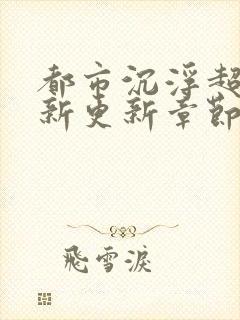 都市沉浮超
新更新章節
飛雪淚